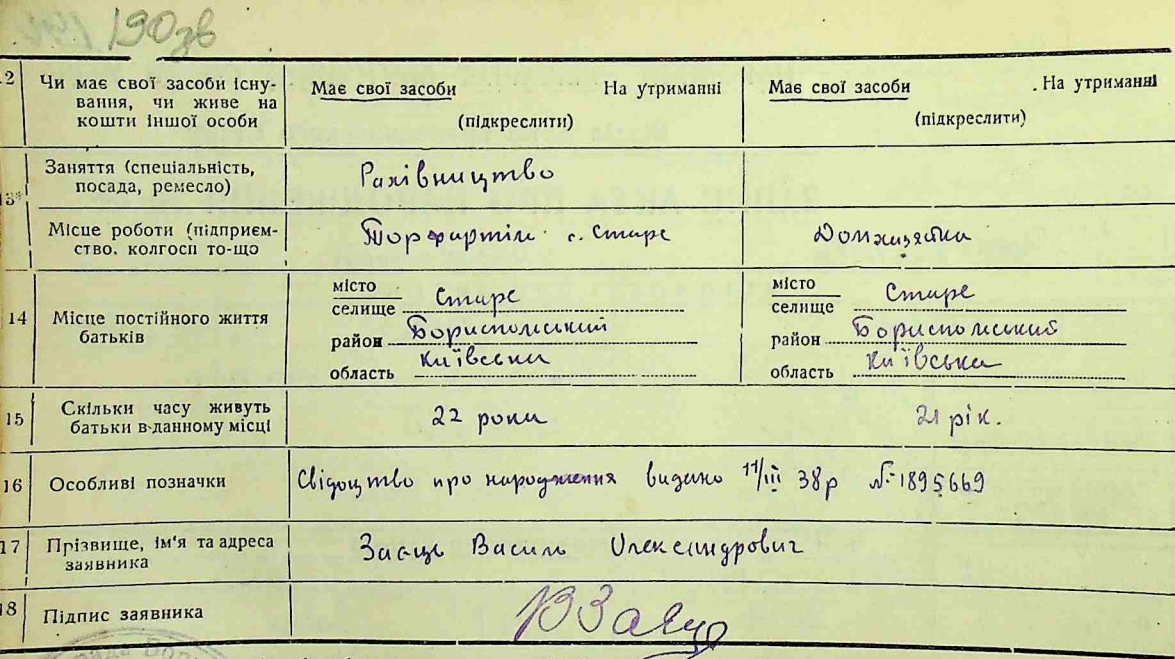 190зв
12 Чи має свої засоби існу-
вання, чи живе на
кошти іншої особи
Має свої засоби На утриманні
(підкреслити)
Має свої засоби На утриманні
(підкреслити)
13* Заняття (спеціальність,
посада, ремесло)
Рахівництво
Місце роботи (підприєм-
ство, колгосп то-що
Торфартіль с. Старе
Домхазяйка
14 Місце постійного життя
батьків
місто
селище Старе
район Бориспольський
область Київська
місто
селище Старе
район Бориспольський
область Київська
15 Скільки часу живуть
батьки в данному місці
22 роки
21 рік.
16 Особливі позначки
Свідоцтво про народження видано 11/III 38р № 1895669
17 Прізвище, ім'я та адреса
заявника
Заєць Василь Олександрович
18 Підпис заявника
ВЗаєць